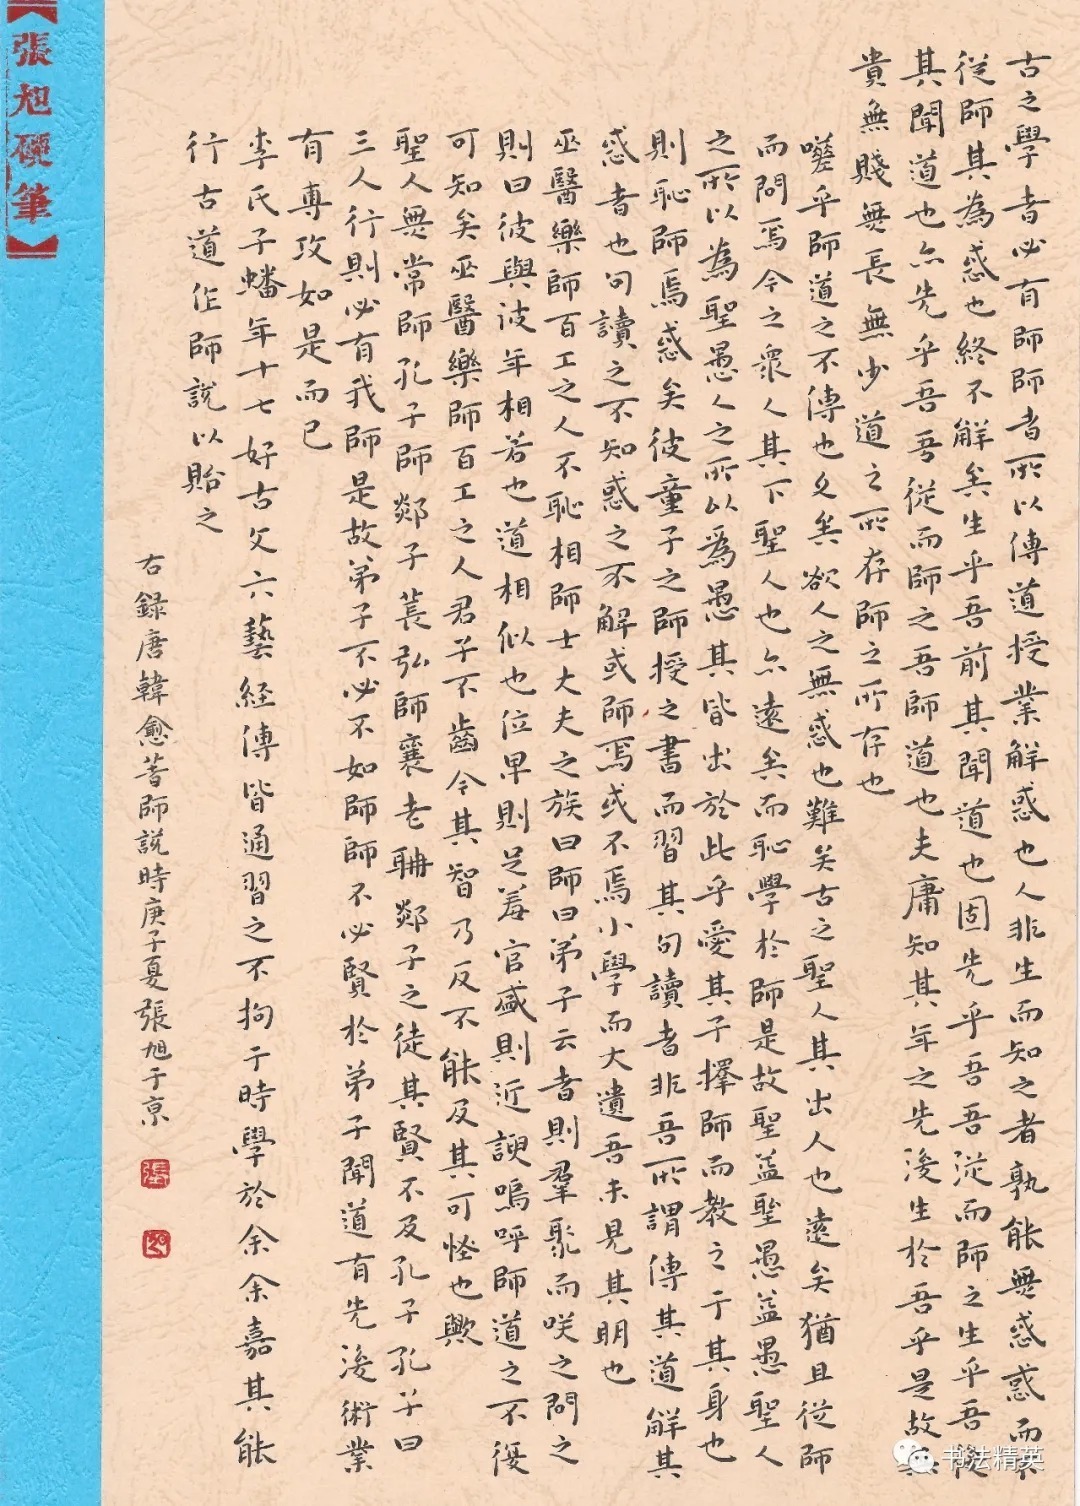 【張旭硬筆】
古之學者必有師師者所以傳道授業解惑也人非生而知之者孰能無惑惑而不
從師其為惑也終不解矣生乎吾前其聞道也固先乎吾吾從而師之生乎吾後
其聞道也亦先乎吾吾從而師之吾師道也夫庸知其年之先後生於吾乎是故無
貴無賤無長無少道之所存師之所存也
嗟乎師道之不傳也久矣欲人之無惑也難矣古之聖人其出人也遠矣猶且從師
而問焉今之眾人其下聖人也亦遠矣而恥學於師是故聖益聖愚益愚聖人
之所以為聖愚人之所以為愚其皆出於此乎愛其子擇師而教之于其身也
則恥師焉惑矣彼童子之師授之書而習其句讀者非吾所謂傳其道解其
惑者也句讀之不知惑之不解或師焉或不焉小學而大遺吾未見其明也
巫醫樂師百工之人不恥相師士大夫之族曰師曰弟子云者則羣聚而咲之問之
則曰彼與彼年相若也道相似也位卑則足羞官盛則近諛嗚呼師道之不復
可知矣巫醫樂師百工之人君子不齒今其智乃反不能及其可怪也歟
聖人無常師孔子師郯子萇弘師襄老聃郯子之徒其賢不及孔子孔子曰
三人行則必有我師是故弟子不必不如師師不必賢於弟子聞道有先後術業
有專攻如是而已
李氏子蟠年十七好古文六藝經傳皆通習之不拘于時學於余余嘉其能
行古道作師說以貽之
右錄唐韓愈著師說時庚子夏張旭于京
張
书法精英